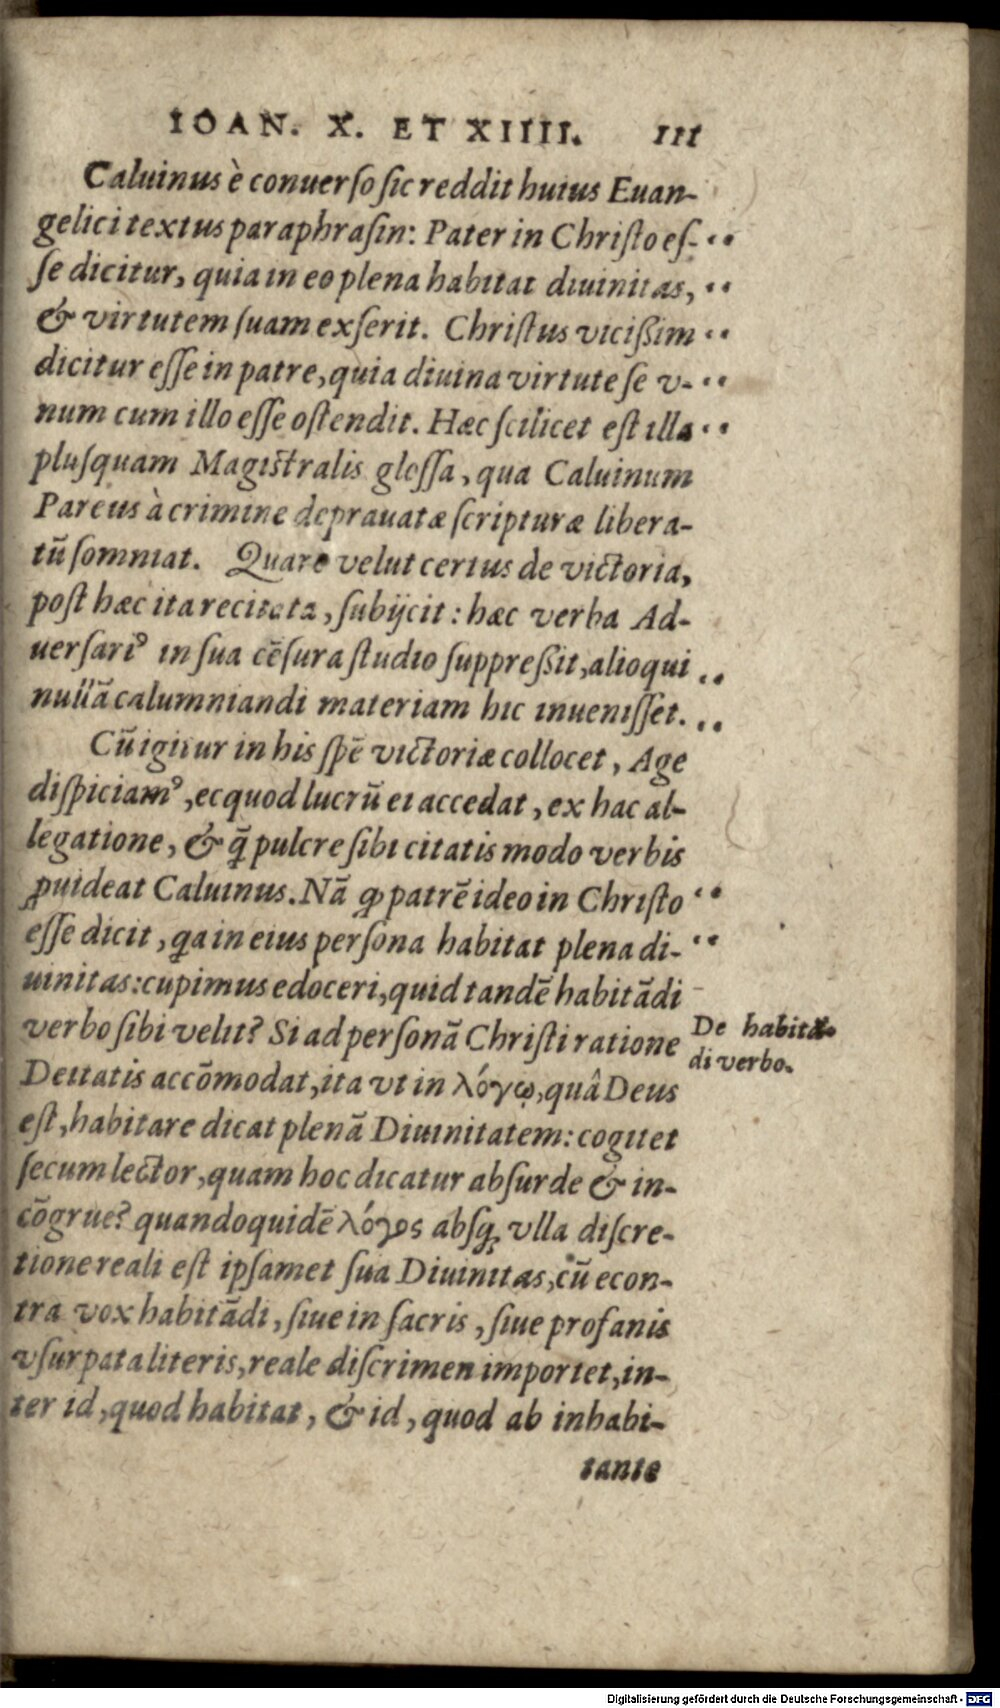 IOAN. X. ET XIIII. 111
Caluinus è conuerſo ſic reddit huius Euan-
gelici textus paraphraſin: Pater in Chriſto eſ- “
ſe dicitur, quia in eo plena habitat diuinitas, “
& virtutem ſuam exſerit. Chriſtus vicißim “
dicitur eſſe in patre, quia diuina virtute ſe v- “
num cum illo eſſe oſtendit. Hæc ſcilicet eſt illa “
pluſquam Magistralis gloſſa, qua Caluinum
Pareus à crimine deprauatæ ſcripturæ libera-
tũ ſomniat. Quare velut certus de victoria,
poſt hæc ita recitata, ſubijcit: hæc verba Ad-
uerſariꝰ in ſua cẽſura ſtudio ſuppreßit, alioqui “
nullã calumniandi materiam hic inueniſſet. “
Cũ igitur in his ſpẽ victoriæ collocet, Age
diſpiciamꝰ, ecquod lucrũ ei accedat, ex hac al-
legatione, & q̃ pulcre ſibi citatis modo verbis
ꝓuideat Caluinus. Nã ꝙ patrẽ ideo in Chriſto “
eſſe dicit, ꝗa in eius perſona habitat plena di- “
uinitas: cupimus edoceri, quid tandẽ habitãdi
verbo ſibi velit? Si ad perſonã Chriſti ratione
De habitã-
di verbo.
Deitatis accõmodat, ita vt in λόγῳ, quâ Deus
eſt, habitare dicat plenã Diuinitatem: cogitet
ſecum lector, quam hoc dicatur abſurde & in-
cõgrue? quandoquidẽ λόγος abſqꝫ vlla diſcre-
tione reali eſt ipſamet ſua Diuinitas, cũ econ-
tra vox habitãdi, ſiue in ſacris, ſiue profanis
vſurpata literis, reale diſcrimen importet, in-
ter id, quod habitat, & id, quod ab inhabi-
tante
Digitalisierung gefördert durch die Deutsche Forschungsgemeinschaft - DFG